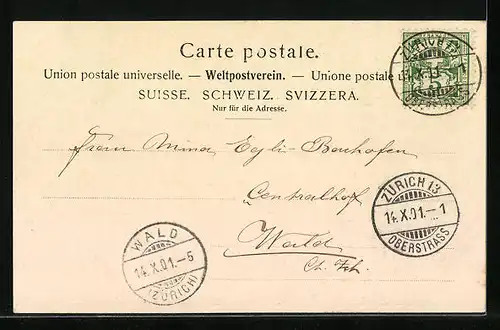 Carte postale.
Union postale universelle. — Weltpostverein. — Unione postale
SUISSE. SCHWEIZ. SVIZZERA.
Nur für die Adresse.
Mina Egli-Bachofen
Centralhof
Wald
Ct. Zch.
ZÜRICH 13
14.X.01.–1
OBERSTRASS
WALD
14.X.01.–5
(ZÜRICH)